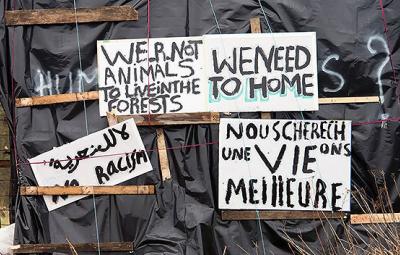 WE.R.NOT
ANIMALS
TO LIVE IN THE
FORESTS
WE NEED
TO HOME
HUM S ?
لا للعنصرية
NO RACISM
NOUS CHERECH
UNE VIE ONS
MEILLEURE